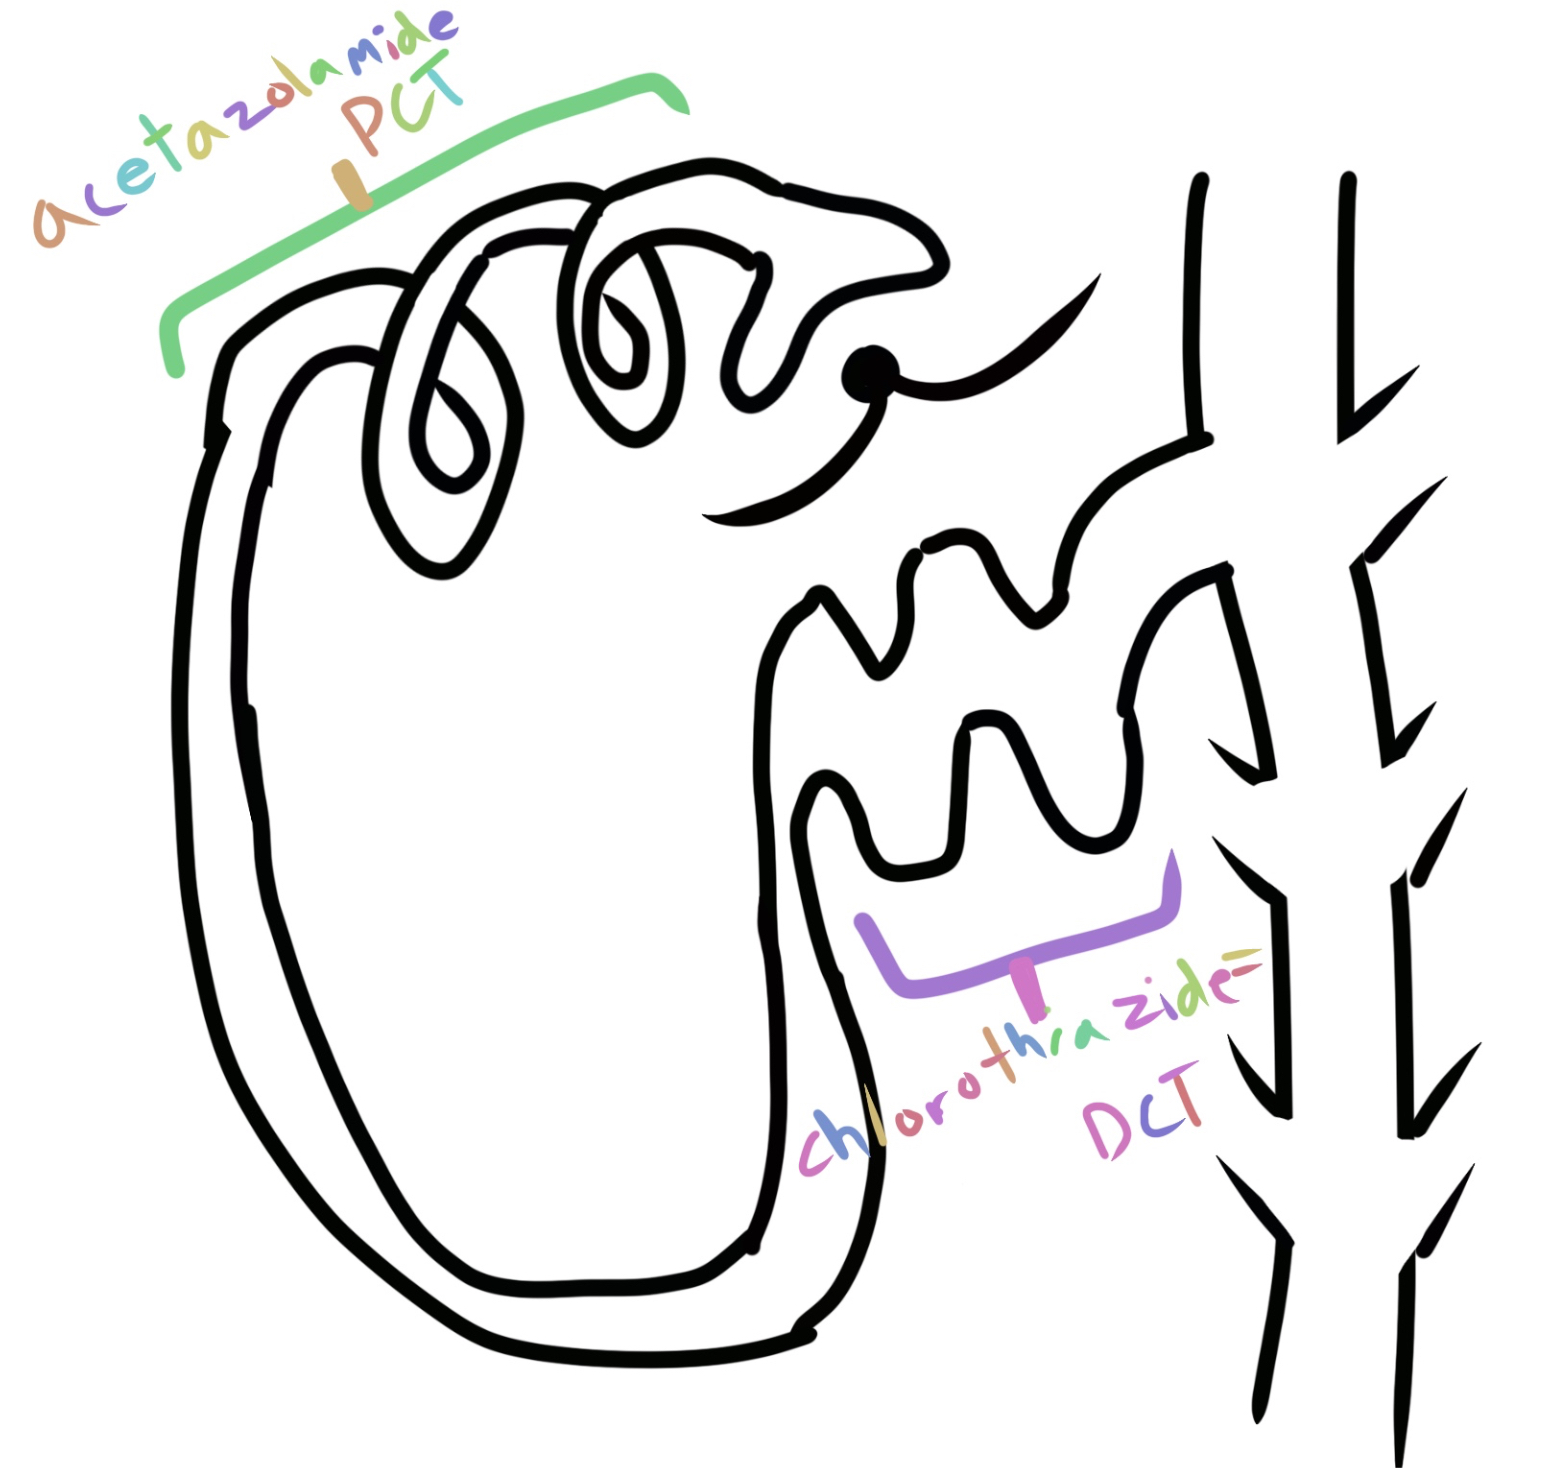 acetazolamide
PCT
chlorothiazide=
DCT